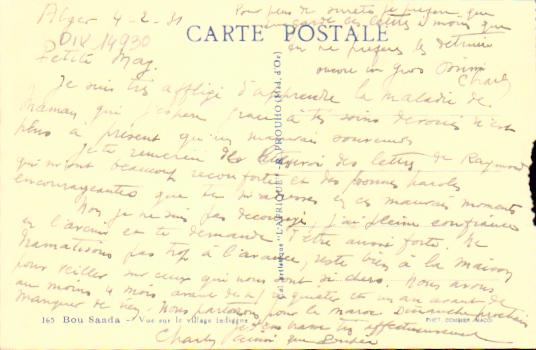 Alger 4-2-31
Pour plus de sureté je préfère que
tu gardes les lettres à moins que
CARTE POSTALE
DIV 14930
tu ne préfères les détruire
Petite Mag.
encore un gros
Charles
Je suis très affligé d'apprendre la maladie de
Maman, qui j'espère grace à tes soins dévoués n'est
plus à présent qu'un mauvais souvenir
Je te remercie de l'envoi des lettres de Raymond
qui m'ont beaucoup réconforté et des bonnes paroles
encourageantes que tu m'adresses en ces mauvais moments
Non je ne suis pas découragé, j'ai pleine confiance
en l'avenir et te demande d'être aussi forte. Ne
dramatisons pas trop à l'avance, reste bien à la maison
pour veiller sur ceux qui nous sont si chers. Nous avons
au moins 4 mois avant de s'inquiéter et un an avant de
manquer de rien. Nous partons pour le Maroc Dimanche prochain
165 Bou Saada - Vue sur le village indigène
affectueusement
Charles
Col. artistique "L'AFRIQUE" - R. PROUHO (Méd. d'Or)